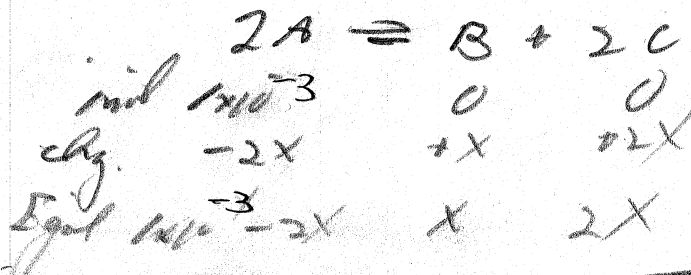 2A ⇌ B + 2C
init 1x10⁻³ 0 0
chg. -2x +x +2x
Equil 1x10⁻³-2x x 2x